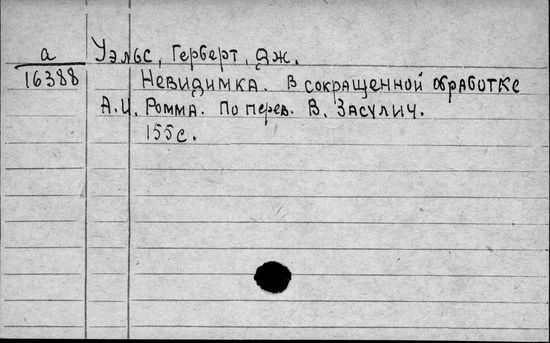 а
16388
Уэльс, Герберт, Дж.
Невидимка. В сокращенной обработке
А.И. Ромма. По перев. В. Засулич.
155 с.